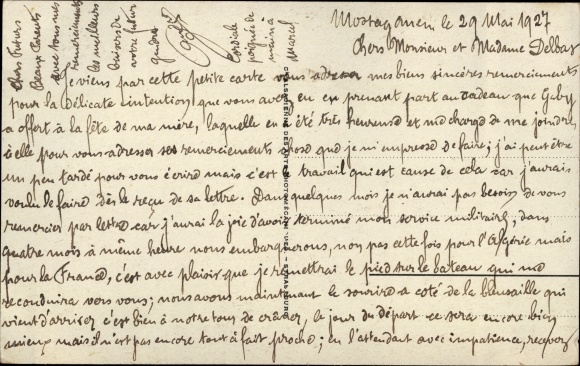 Mostaganem le 29 Mai 1927
Chers Monsieur et Madame Delbas
Je viens par cette petite carte vous adresser mes biens sincères remerciements
pour la délicate intention que vous avez eu en prenant part au cadeau que Gaby
a offert à la fête de ma mère, laquelle en a été très heureuse et me charge de me joindre
à elle pour vous adresser ses remerciements chose que je m'impresse de faire; j'ai peut être
un peu tardé pour vous écrire mais c'est le travail qui est cause de cela car j'aurais
voulu le faire dès le reçu de sa lettre. Dans quelques mois je n'aurai pas besoin de vous
remercier par lettre car j'aurai la joie d'avoir terminé mon service militaire, dans
quatre mois à même heure nous embarquerons, non pas cette fois pour l'Algérie mais
pour la France, c'est avec plaisir que je remettrai le pied sur le bateau qui me
reconduira vers vous; nous avons maintenant le sourire a coté de la bleusaille qui
vient d'arriver c'est bien à notre tour de crâner, le jour du départ ce sera encore bien
mieux mais il n'est pas encore tout à fait proche; en l'attendant avec impatience, recevez
Chers Futurs
Beaux Parents
avec tous mes
remerciements
les meilleurs
baisers de
votre futur
gendre
Cordiale
poignée de
main à
Marcel